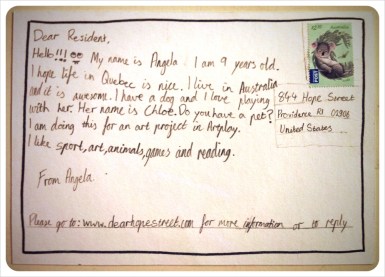 Dear Resident,
Hello!!! My name is Angela. I am 9 years old.
I hope life in Quebec is nice. I live in Australia
and it is awesome. I have a dog and I love playing
with her. Her name is Chloe. Do you have a pet?
I am doing this for an art project in Artplay.
I like sport, art, animals, games and reading.
From Angela
844 Hope Street
Providence RI 02906
United States
Please go to: www.dearhopestreet.com for more information or to reply